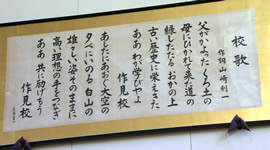 校歌
作詞 山崎利一
父がかよったくろ土の
母にひかれて来た道の
緑したたる おかの上
古い歴史に栄えきた
ああ わが学びやよ
作見校
あしたにあおぐ 大空の
夕べにいのる 白山の
雄々しい姿そのままに
高い理想の手をつなぎ
ああ 共に励げもう
作見校